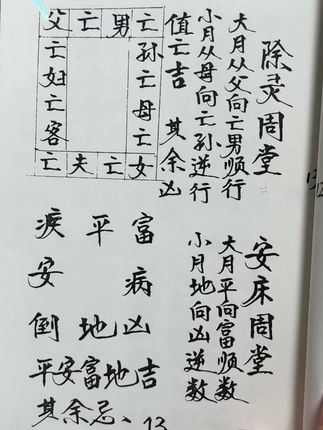 除灵周堂
大月从父向亡男顺行
小月从母向亡孙逆行
值亡吉 其余凶
父亡男亡
亡 孙
妇 亡
亡 母
客 亡
亡夫亡女
安床周堂
大月平向富顺数
小月地向凶逆数
平 富
安 病
倒 地 凶
平安富地吉
其余忌、
13